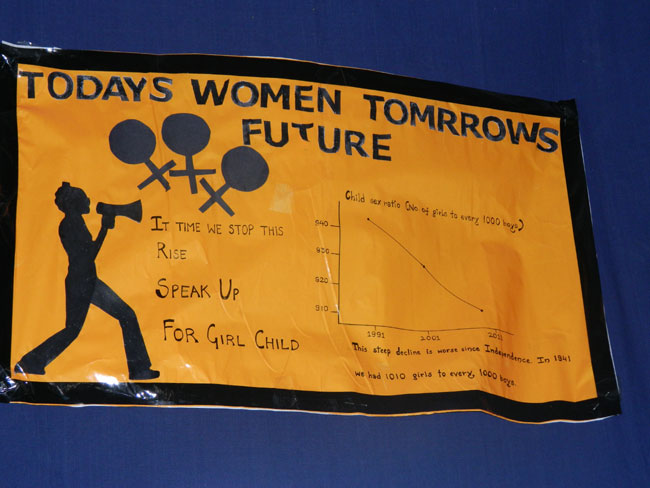 TODAYS WOMEN TOMRROWS
FUTURE
IT TIME WE STOP THIS
RISE
SPEAK UP
FOR GIRL CHILD
Child sex ratio (No of girls to every 1000 boys)
940
930
920
910
1991 2001 2011
This steep decline is worse since Independence. In 1941
we had 1010 girls to every, 1000 boys.